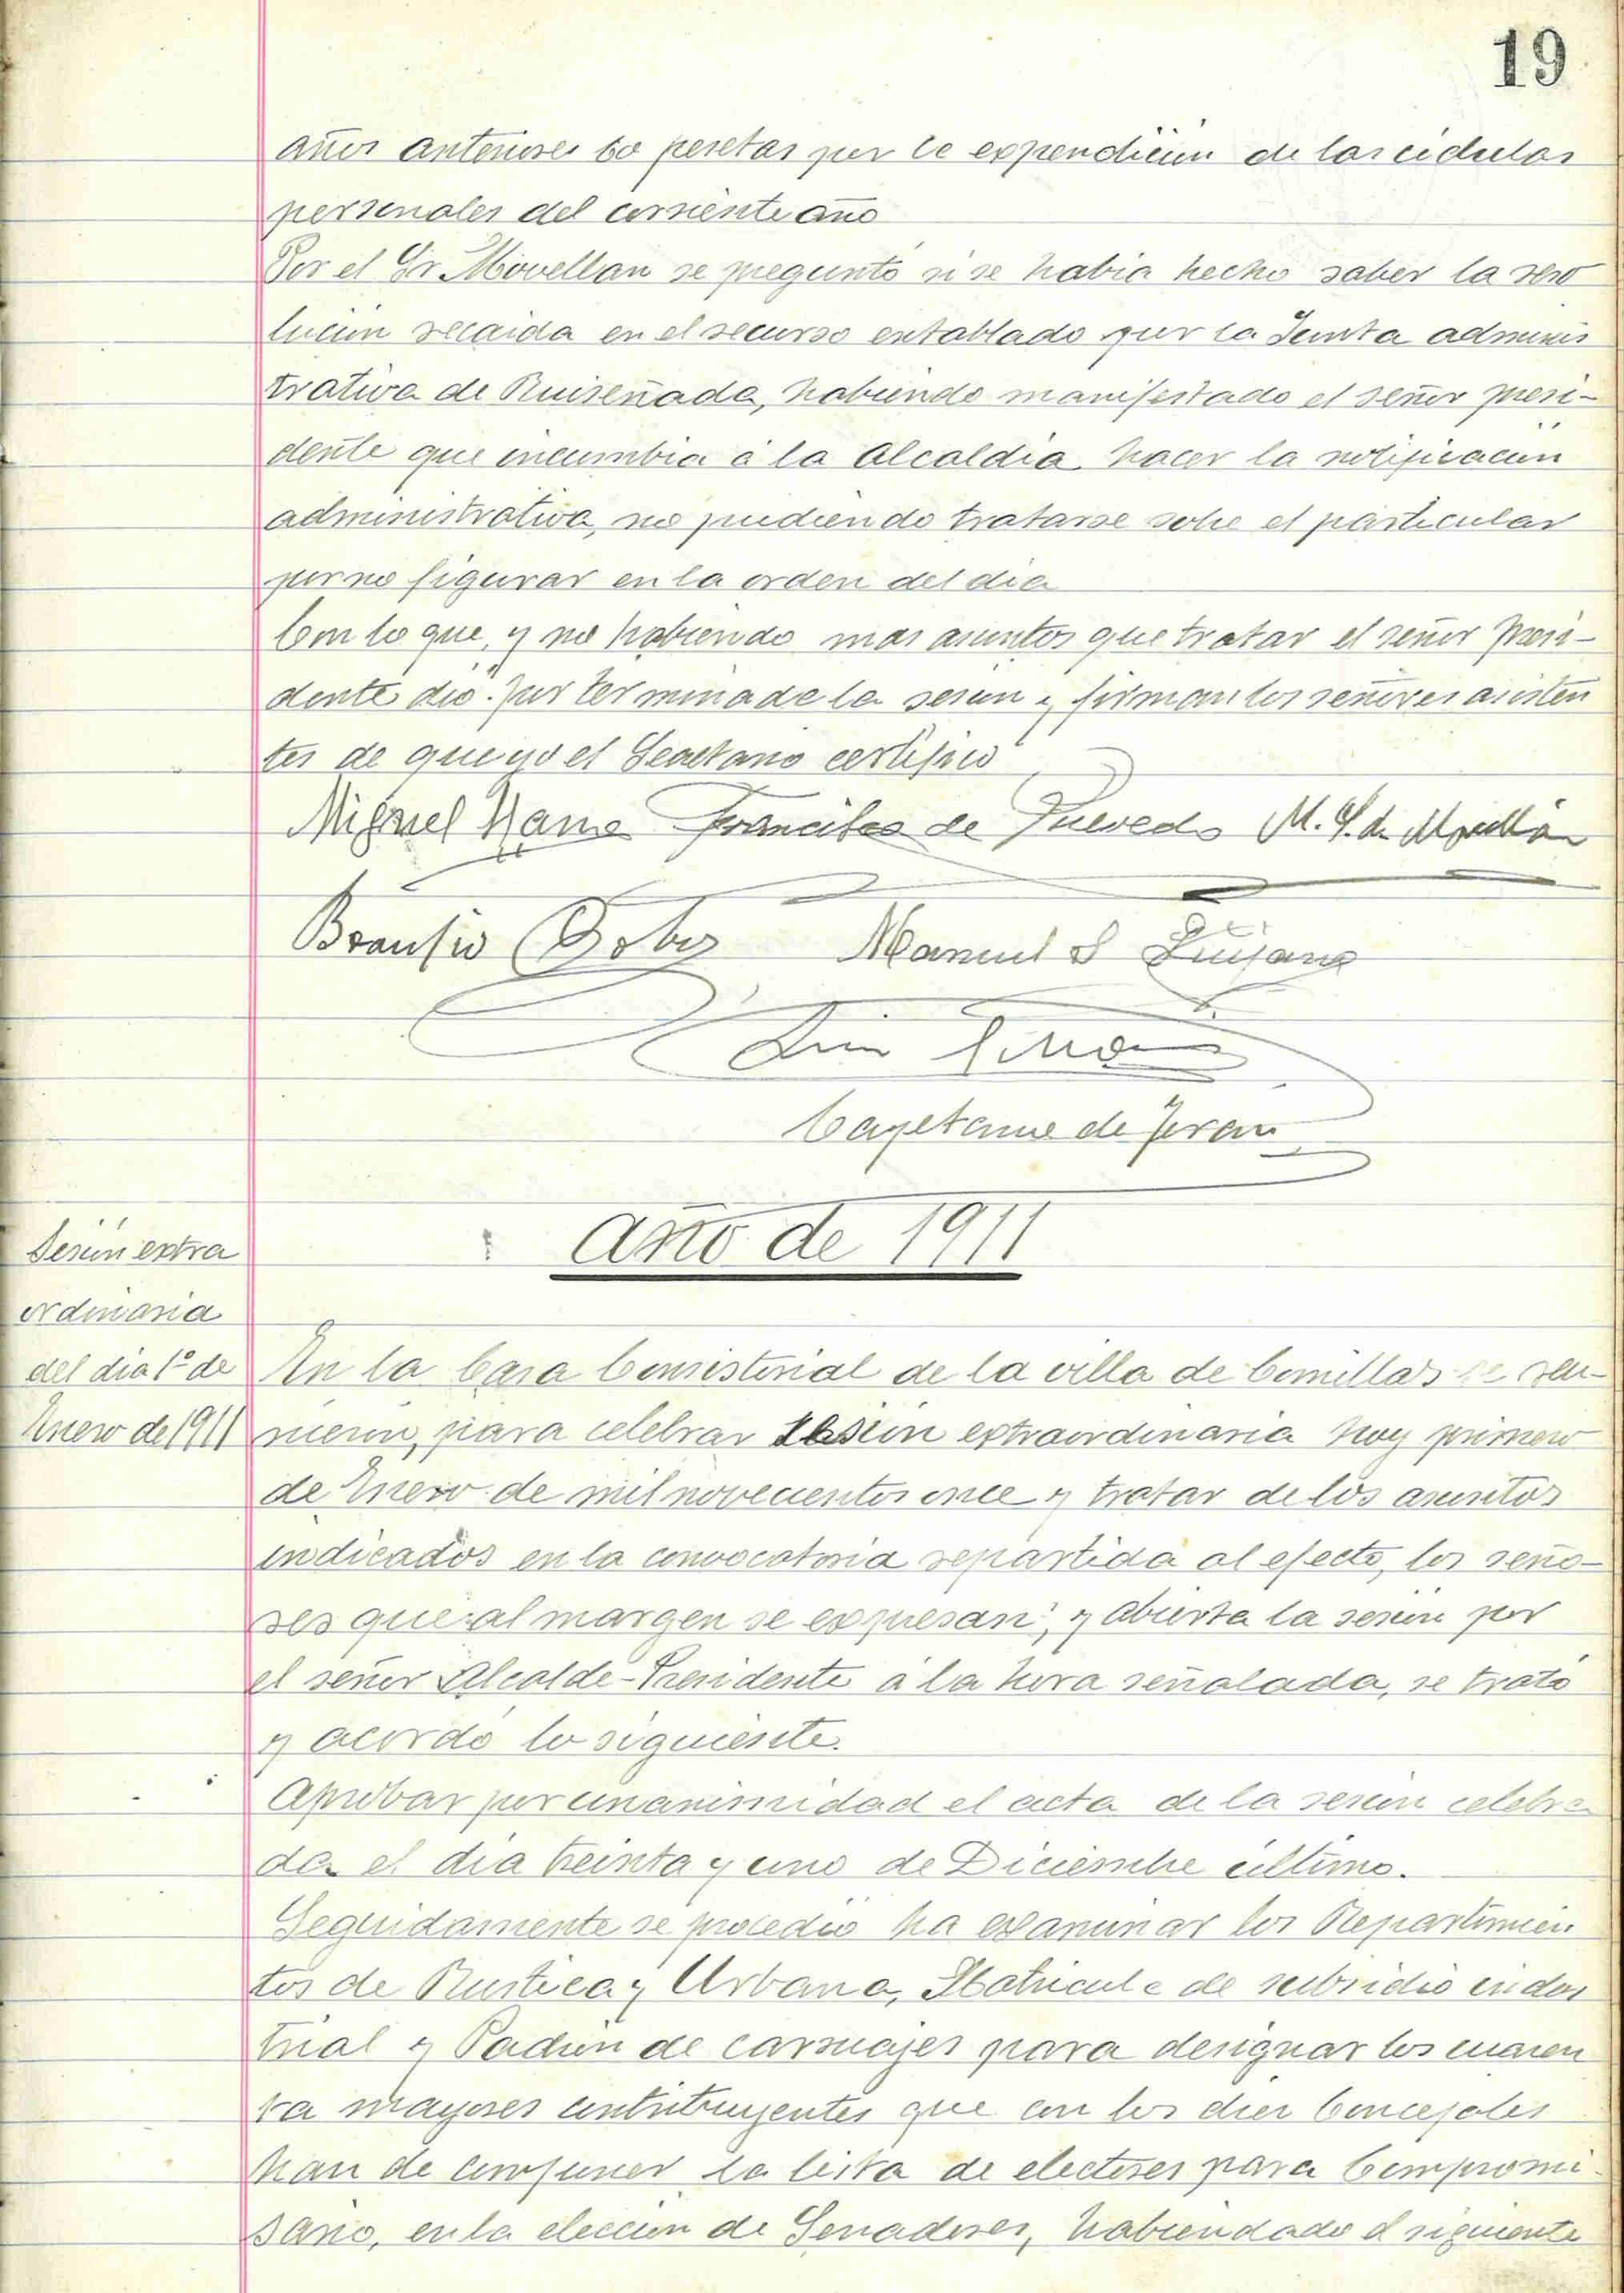 19
años anteriores 60 pesetas por la expendición de las cédulas
personales del corriente año
Por el Sr Movellan se preguntó si se habia hecho saber la reso
lución recaida en el recurso entablado por la Junta adminis
trativa de Ruiseñada, habiendo manifestado el señor presi-
dente que incumbia á la Alcaldia hacer la notificación
administrativa, no pudiendo tratarse sobre el particular
por no figurar en la orden del dia
Con lo que, y no habiendo mas asuntos que tratar el señor Presi-
dente dió por terminada la sesión y firman los señores asisten
tes de que yo el Secretario certifico
Miguel Francisco de Quevedo M. S. de Movellán
Braulio Manuel S
Luis
Cayetano de Terán
Año de 1911
Sesión extra
ordinaria
del dia 1º de
Enero de 1911
En la Casa Consistorial de la villa de Comillas se reu-
nieron, para celebrar sesión extraordinaria hoy primero
de Enero de mil novecientos once y tratar de los asuntos
indicados en la convocatoria repartida al efecto, los seño-
res que al margen se expresan, y abierta la sesión por
el señor Alcalde-Presidente á la hora señalada, se trató
y acordó lo siguiente.
Aprobar por unanimidad el acta de la sesión celebra
da el dia treinta y uno de Diciembre último.
Seguidamente se procedió ha examinar los Repartimien
tos de Rustica y Urbana, Matricula de subsidio indus
trial y Padrón de carruajes para designar los cuaren
ta mayores contribuyentes que con los diez Concejales
han de componer la lista de electores para Compromi
sario, en la elección de Senadores, habiendo dado el siguiente